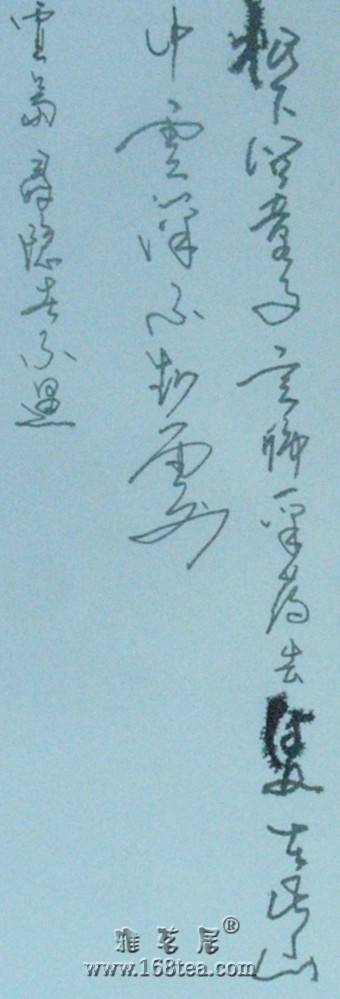 松下问童子言師采药去隻在此山
中雲深不知處
雲
尋隐者不遇
雅茗居®
www.168tea.com